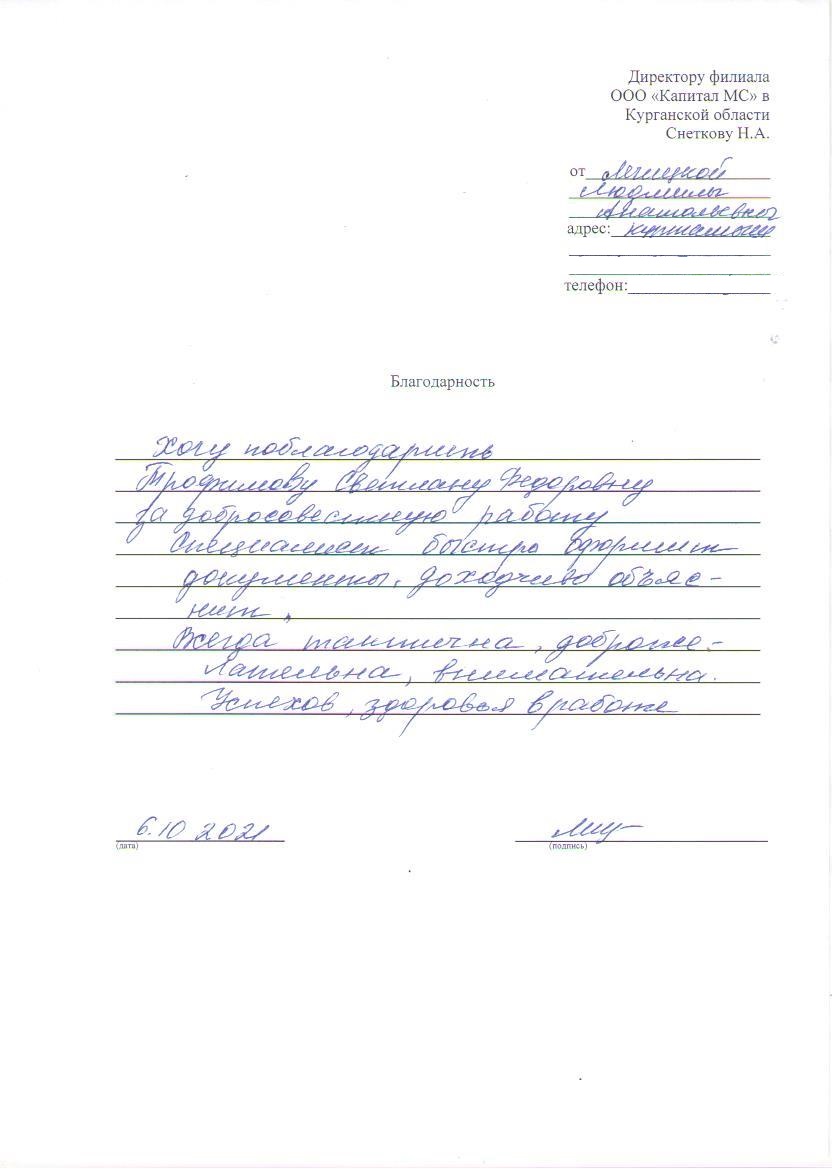 Директору филиала
ООО «Капитал МС» в
Курганской области
Снеткову Н.А.
от
Людмилы
Анатольевны
адрес: Куртамыш
телефон:
Благодарность
Хочу поблагодарить
Трофимову Светлану Федоровну
за добросовестную работу
Специалист быстро оформит
документы, доходчиво объяс-
нит,
Всегда тактична, доброже-
лательна, внимательна.
Успехов, здоровья в работе
6.10 2021
(дата)
(подпись)